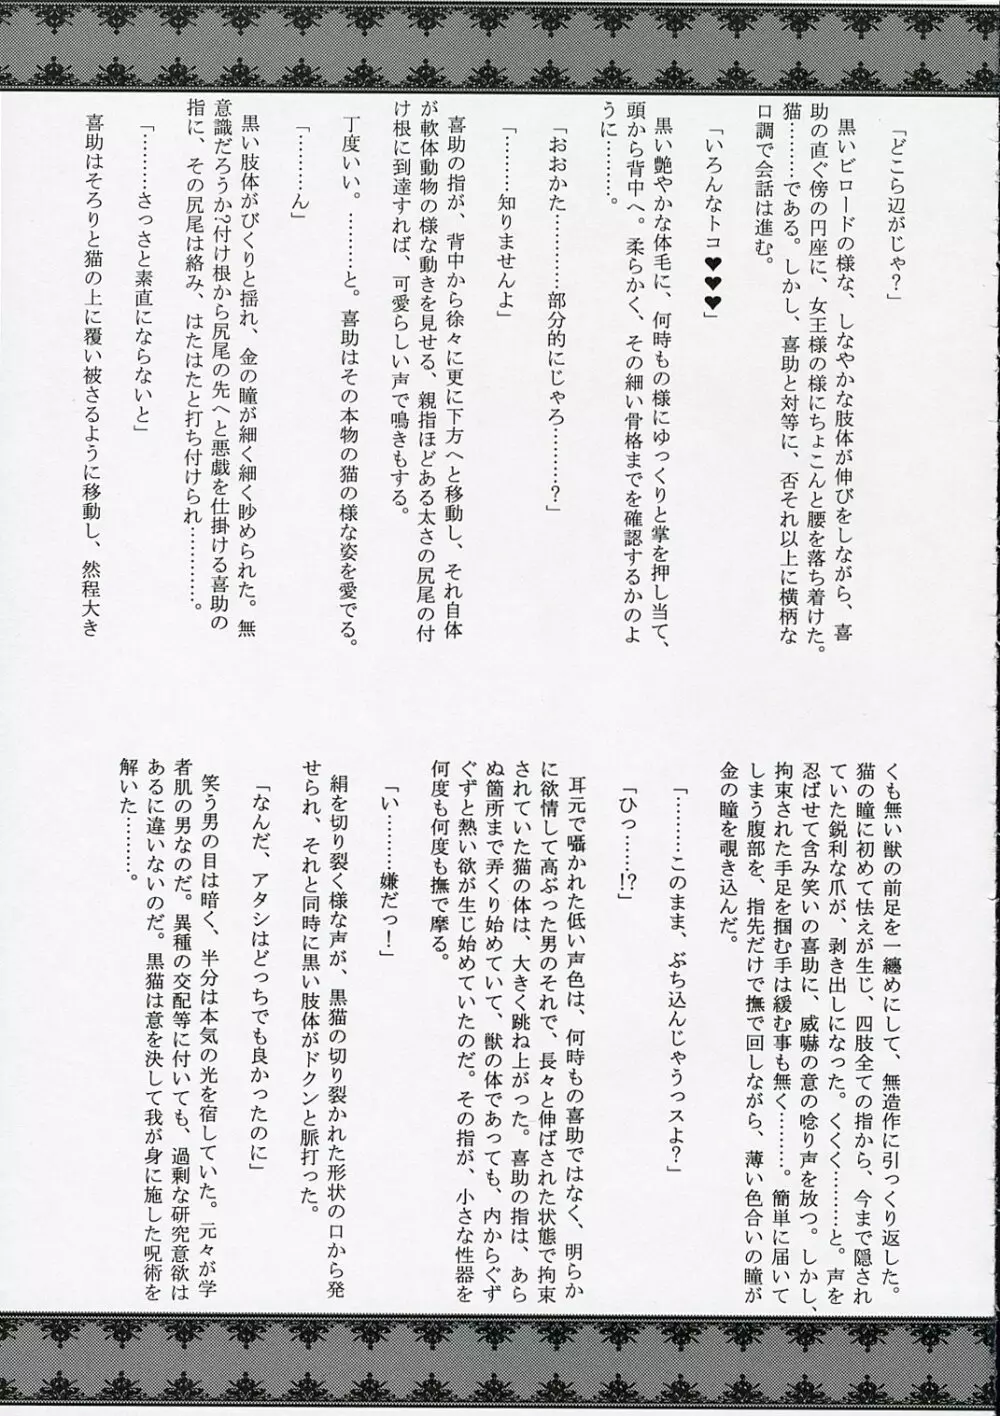 「どこら辺がじゃ？」
黒いビロードの様な、しなやかな肢体が伸びをしながら、喜
助の直ぐ傍の円座に、女王様の様にちょこんと腰を落ち着けた。
猫………である。しかし、喜助と対等に、否それ以上に横柄な
口調で会話は進む。
「いろんなトコ♥♥♥」
黒い艶やかな体毛に、何時もの様にゆっくりと掌を押し当て、
頭から背中へ。柔らかく、その細い骨格までを確認するかのよ
うに………。
「おおかた…………部分的にじゃろ………？」
「………知りませんよ」
喜助の指が、背中から徐々に更に下方へと移動し、それ自体
が軟体動物の様な動きを見せる、親指ほどある太さの尻尾の付
け根に到達すれば、可愛らしい声で鳴きもする。
丁度いい。………と。喜助はその本物の猫の様な姿を愛でる。
「………ん」
黒い肢体がびくりと揺れ、金の瞳が細く細く眇められた。無
意識だろうか？付け根から尻尾の先へと悪戯を仕掛ける喜助の
指に、その尻尾は絡み、はたはたと打ち付けられ…………。
「………さっさと素直にならないと」
喜助はそろりと猫の上に覆い被さるように移動し、然程大き
くも無い獣の前足を一纏めにして、無造作に引っくり返した。
猫の瞳に初めて怯えが生じ、四肢全ての指から、今まで隠され
ていた鋭利な爪が、剥き出しになった。くくく………と。声を
忍ばせて含み笑いの喜助に、威嚇の意の唸り声を放つ。しかし、
拘束された手足を掴む手は緩む事も無く………。簡単に届いて
しまう腹部を、指先だけで撫で回しながら、薄い色合いの瞳が
金の瞳を覗き込んだ。
「………このまま、ぶち込んじゃうっスよ？」
「ひっ……!?」
耳元で囁かれた低い声色は、何時もの喜助ではなく、明らか
に欲情して高ぶった男のそれで、長々と伸ばされた状態で拘束
されていた猫の体は、大きく跳ね上がった。喜助の指は、あら
ぬ箇所まで弄くり始めていて、獣の体であっても、内からぐず
ぐずと熱い欲が生じ始めていたのだ。その指が、小さな性器を
何度も何度も撫で摩る。
「い………嫌だっ！」
絹を切り裂く様な声が、黒猫の切り裂かれた形状の口から発
せられ、それと同時に黒い肢体がドクンと脈打った。
「なんだ、アタシはどっちでも良かったのに」
笑う男の目は暗く、半分は本気の光を宿していた。元々が学
者肌の男なのだ。異種の交配等に付いても、過剰な研究意欲は
あるに違いないのだ。黒猫は意を決して我が身に施した呪術を
解いた………。